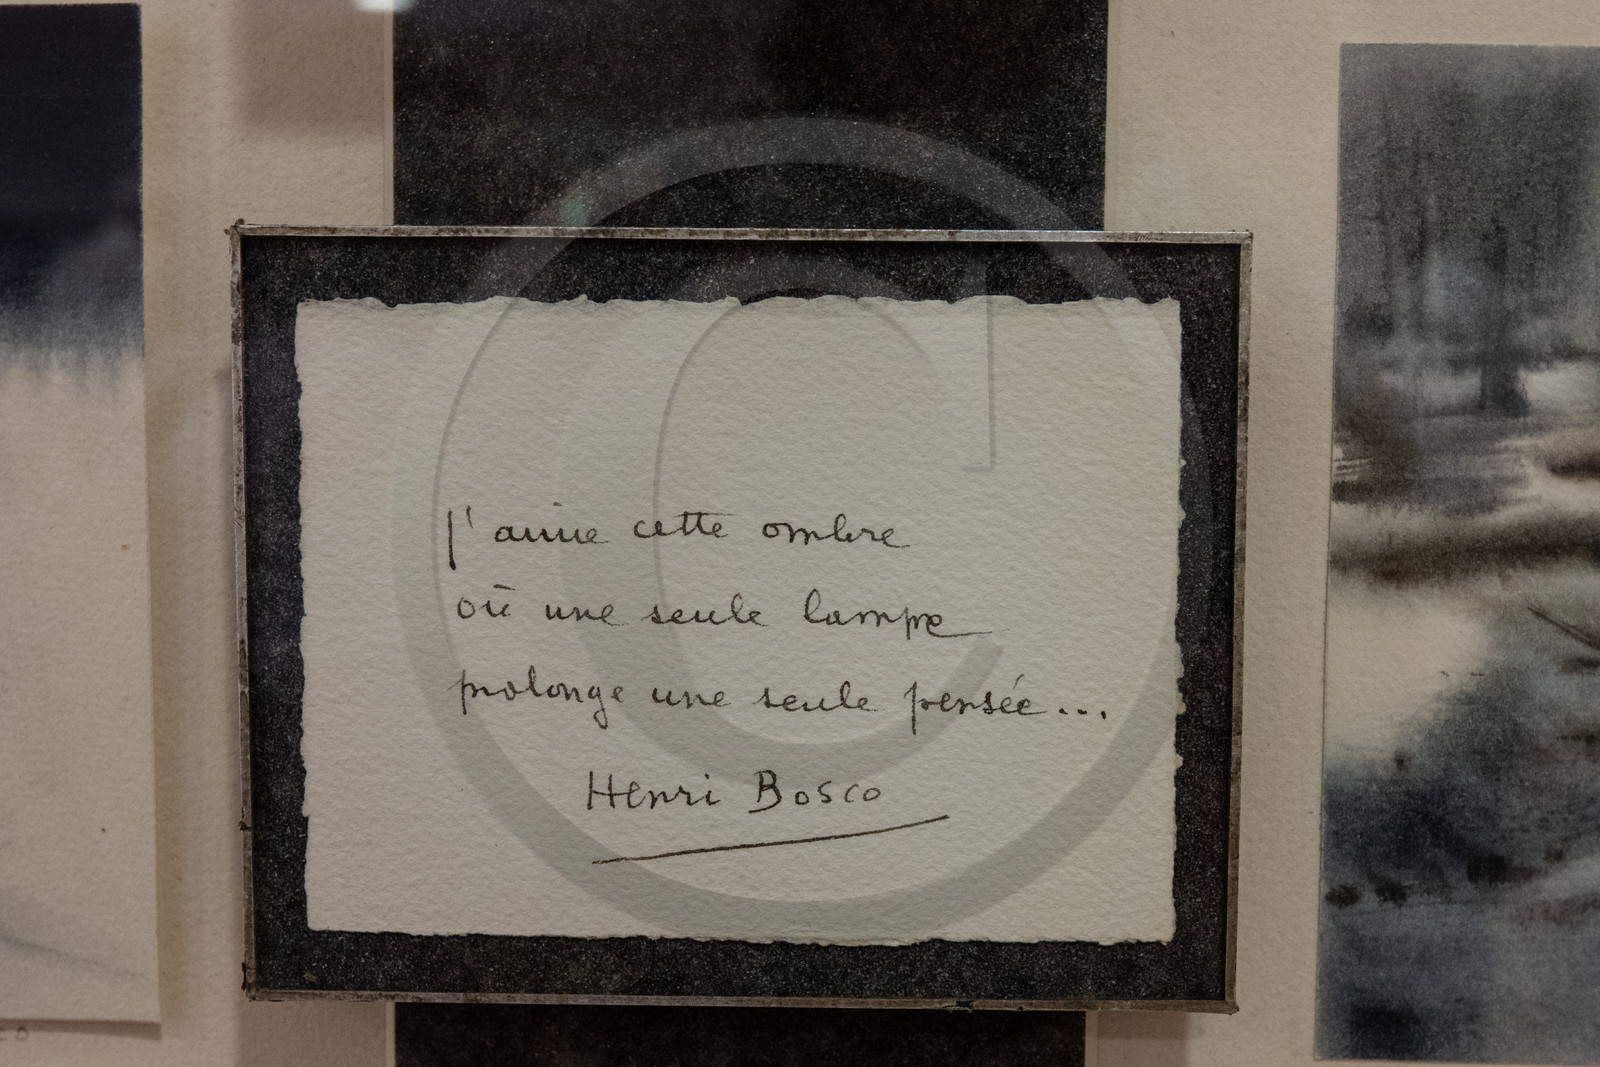 J'aime cette ombre
où une seule lampe
prolonge une seule pensée...
Henri Bosco